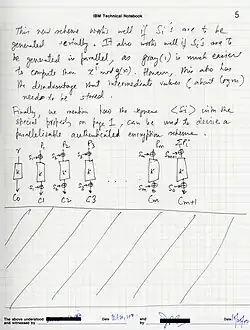 IBM Technical Notebook
5
This new scheme works well if Si's are to be
generated serially. It also works well if Si's are to
be generated in parallel, as gray(i) is much easier
to compute than x^i mod g(x). However, this also has
the disadvantage that intermediate values (about log m)
need to be stored.
Finally, we mention how the sequence (Si) with the
special property on page 1, can be used to devise a
parallelizable authenticated encryption scheme.
r P1 P2 P3 Pm ΣPi
K K K K K K
C0 C1 C2 C3 Cm Cm+1
The above understood
and witnessed by
Date
and
by
Date